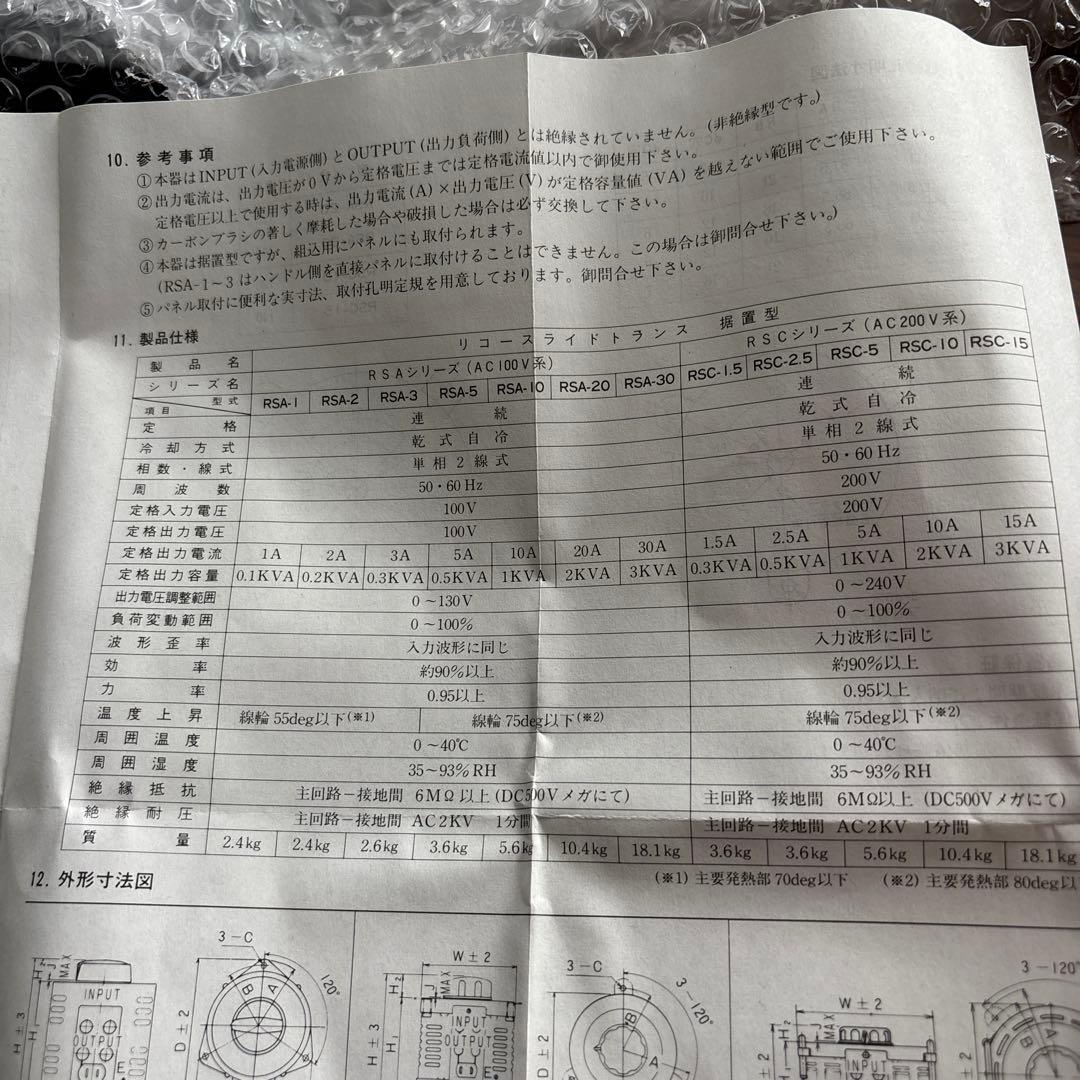 10. 参考事項
①本器はINPUT(入力電源側)とOUTPUT(出力負荷側)とは絶縁されていません。(非絶縁型です。)
②出力電流は、出力電圧が0Vから定格電圧までは定格電流値以内で御使用下さい。
定格電圧以上で使用する時は、出力電流(A)×出力電圧(V)が定格容量値(VA)を越えない範囲でご使用下さい。
③カーボンブラシの著しく摩耗した場合や破損した場合は必ず交換して下さい。
④本器は据置型ですが、組込用にパネルにも取付られます。
(RSA-1~3はハンドル側を直接パネルに取付けることはできません。この場合は御問合せ下さい。)
⑤パネル取付に便利な実寸法、取付孔明定規を用意しております。御問合せ下さい。
11. 製品仕様
製品名 リコースライドトランス 据置型
シリーズ名 RSAシリーズ(AC100V系) RSCシリーズ(AC200V系)
項目 型式 RSA-1 RSA-2 RSA-3 RSA-5 RSA-10 RSA-20 RSA-30 RSC-1.5 RSC-2.5 RSC-5 RSC-10 RSC-15
定格 連続 連続
冷却方式 乾式自冷 乾式自冷
相数・線式 単相2線式 単相2線式
周波数 50・60Hz 50・60Hz
定格入力電圧 100V 200V
定格出力電圧 100V 200V
定格出力電流 1A 2A 3A 5A 10A 20A 30A 1.5A 2.5A 5A 10A 15A
定格出力容量 0.1KVA 0.2KVA 0.3KVA 0.5KVA 1KVA 2KVA 3KVA 0.3KVA 0.5KVA 1KVA 2KVA 3KVA
出力電圧調整範囲 0~130V 0~240V
負荷変動範囲 0~100% 0~100%
波形歪率 入力波形に同じ 入力波形に同じ
効率 約90%以上 約90%以上
力率 0.95以上 0.95以上
温度上昇 線輪55deg以下(※1) 線輪75deg以下(※2) 線輪75deg以下(※2)
周囲温度 0~40℃ 0~40℃
周囲湿度 35~93%RH 35~93%RH
絶縁抵抗 主回路-接地間 6MΩ以上(DC500Vメガにて) 主回路-接地間 6MΩ以上(DC500Vメガにて)
絶縁耐圧 主回路-接地間 AC2KV 1分間 主回路-接地間 AC2KV 1分間
質量 2.4kg 2.4kg 2.6kg 3.6kg 5.6kg 10.4kg 18.1kg 3.6kg 3.6kg 5.6kg 10.4kg 18.1kg
(※1)主要発熱部70deg以下 (※2)主要発熱部80deg以
12. 外形寸法図
3-C
120°
H2
J
MAX
INPUT
OUTPUT
E
H±3
H1
D±2
B
A
W±2
H2
J
MAX
INPUT
OUTPUT
E
H±3
H1
3-C
3-120°
D±2
B
A
W±2
H2
J
MAX
INPUT
3-120°
D±2